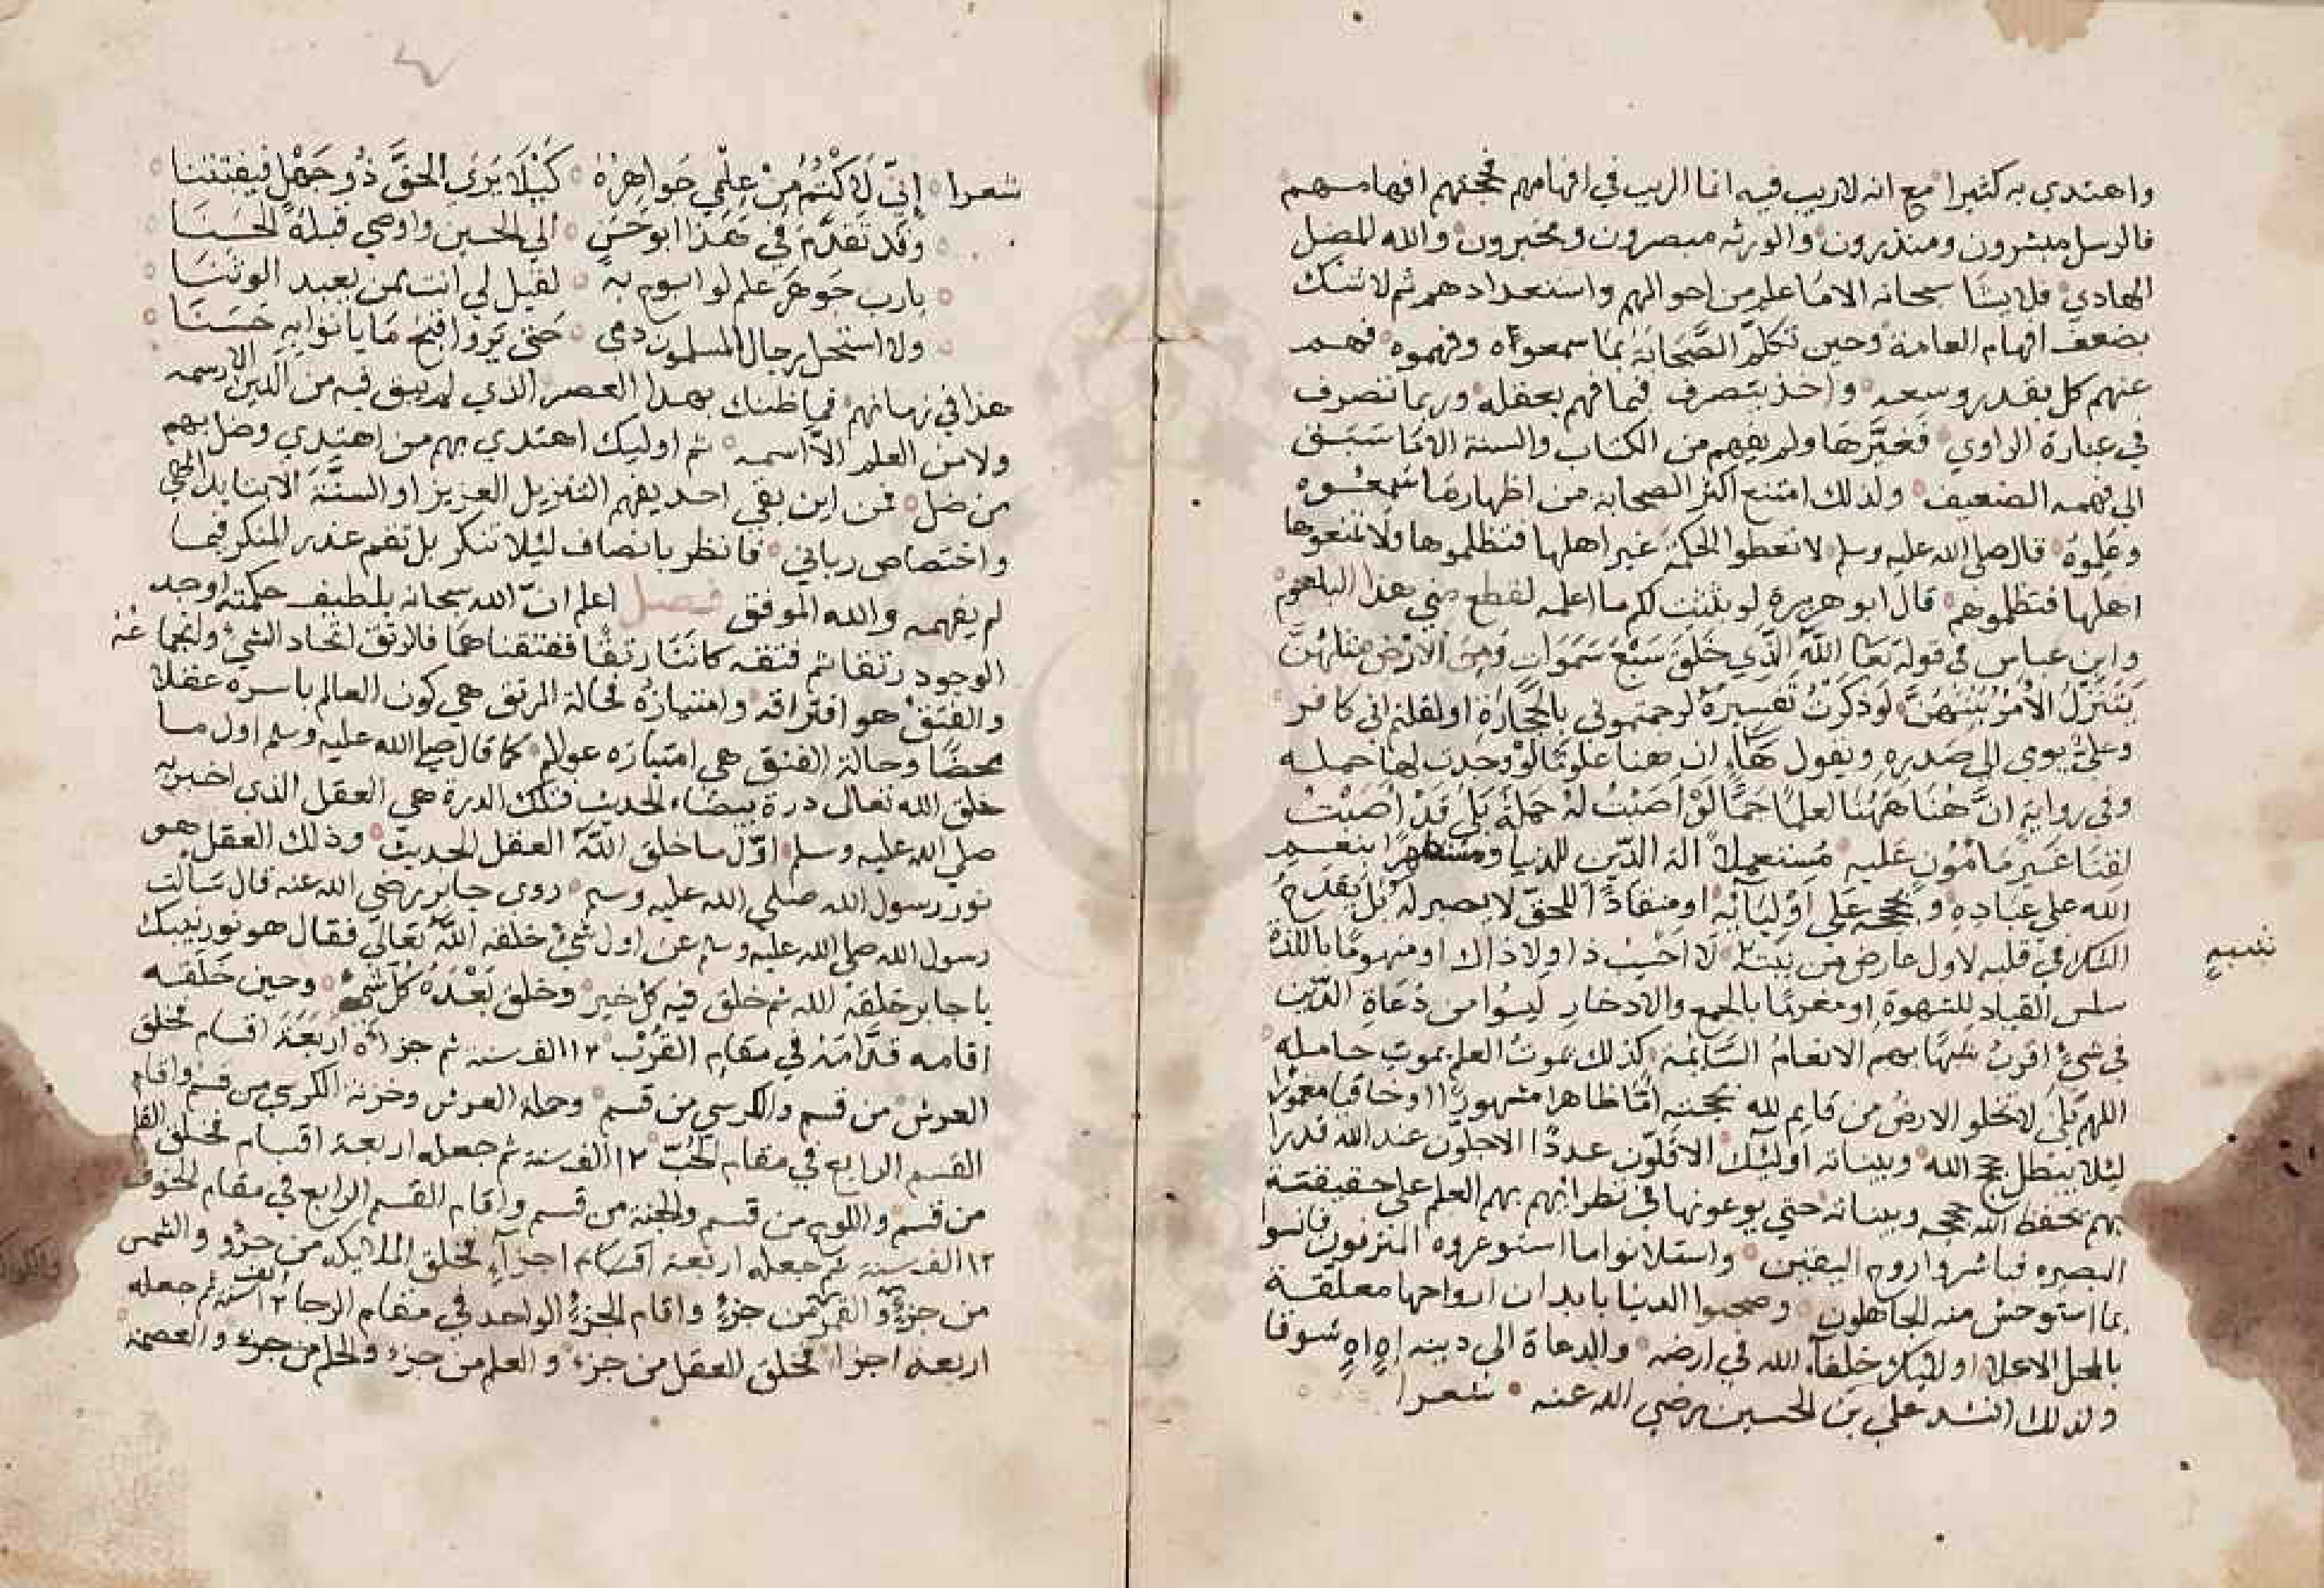 واهتدي به كثيرا مع انه لا ريب فيه انما الريب في افهامهم فحجبتهم افهامهم
فالرسل مبشرون ومنذرون والورثه مبصرون ومخبرون والله المضل
الهادي فلا يشا سبحانه الا ما علم من احوالهم واستعدادهم ثم لا تشك
بضعف افهام العامة وحين تكلم الصحابة بما سمعوه وفهموه فهم
عنهم كل بقدر وسعه واخذ بتصرف فيما فهم بعقله وربما تصرف
في عبارة الراوي فغيرها ولم يفهم من الكتاب والسنة الا ما سبق
الي فهمه الضعيف ولذلك امتنع اكثر الصحابه من اظهار ما سمعوه
وعلموه قال صلي الله عليه وسلم لا تعطوا الحكمة غير اهلها فتظلموها ولا تمنعوها
اهلها فتظلموهم قال ابو هريرة لو بثثت لكم ما اعلمه لقطع مني هذا البلعوم
وابن عباس في قوله تعا اللَّهُ الَّذِي خَلَقَ سَبْعَ سَمَوَاتٍ وَمِنَ الْأَرْضِ مِثْلَهُنَّ
يَتَنَزَّلُ الْأَمْرُ بَيْنَهُنَّ لو ذكرت تفسيره لرجمتموني بالحجارة او لقلتم اني كافر
وعلي يومي الي صدره ويقول هاء ان هنا علوما لو وجدت لها حمله
وفي رواية ان هنا ههنا لعلما جما لو اصبت له حملة بلي قد اصبت
لقنا غير مامون عليه مستعملا الة الدين للدنيا ومستظهرا بنعم
الله علي عباده وبحججه علي اوليائه او منقادا للحق لا بصير له بل يقدح
الشك في قلبه لاول عارض من لا ذا ولا ذاك او منهوما باللذة
تنبيه
سلس القياد للشهوة او مغرما بالجمع والادخار ليسوا من دعاة الدين
في شيء اقرب شبها بهم الانعام السائمة كذلك يموت العلم بموت حامله
اللهم بلي لا تخلو الارض من قايم لله بحجته اما ظاهرا مشهورا او خافيا مغمورا
ليلا يبطل حجج الله وبيناته اوليك الاقلون عددا الاجلون عند الله قدرا
بهم يحفظ الله حججه وبيناته حتي يودعونها في نظرائهم بهم العلم علي حقيقة
البصيره فباشروا روح اليقين واستلانوا ما استوعره المترفون فانسوا
بما استوحش منه الجاهلون وصحبوا الدنيا بابدان ارواحها معلقة
بالمحل الاعلا اوليك خلفاء الله في ارضه والدعاة الي دينه اه اه شوقا
ولذلك انشد علي بن الحسين رضي الله عنه شعرا
شعرا اني لاكتم من علمي جواهره كيلا يري الحق ذو جهل فيفتتنا
وقد تقدم في هذا ابو حسن الي الحسين واوصي قبله الحسنا
يا رب جوهر علم لو ابوح به لقيل لي انت ممن يعبد الوثنا
ولا استحل رجال المسلمون دمي حتي يروا اقبح ما ياتوا به حسنا
هذا في زمانهم فما ظنك بهذا العصر الذي لم يبق فيه من الدين الا رسمه
ولا من العلم الا اسمه ثم اوليك اهتدي بهم من اهتدي وضل بهم
من ضل فمن اين بقي احد يفهم التنزيل العزيز او السنة الا بتايد الهي
واختصاص رباني فانظر بانصاف ليلا تنكر بل تقم عذر المنكر فيما
لم يفهمه والله الموفق فصل اعلم ان الله سبحانه بلطيف حكمته اوجد
الوجود رتقا ثم فتقه كانتا رتقا ففتقناهما فالرتق اتحاد الشيء واجتماعه
والفتق هو افتراقه وامتيازه فحالة الرتق هي كون العالم باسره عقلا
محضا وحالة الفتق هي امتيازه عوالم كما قال صلي الله عليه وسلم اول ما
خلق الله تعالي درة بيضاء الحديث فتلك الدرة هي العقل الذي اخبر به
صلي الله عليه وسلم اول ما خلق الله العقل الحديث وذلك العقل هو
نور رسول الله صلي الله عليه وسلم روي جابر رضي الله عنه قال سالت
رسول الله صلي الله عليه وسلم عن اول شيء خلقه الله تعالي فقال هو نور نبيك
يا جابر خلقه الله ثم خلق فيه كل خير وخلق بعده كل شيء وحين خلقه
اقامه قدامه في مقام القرب ١٢ الف سنه ثم جزاه اربعة اقسام فخلق
العرش من قسم والكرسي من قسم وحملة العرش وخزنة الكرسي من قسم واقام
القسم الرابع في مقام الحب ١٢ الف سنة ثم جعله اربعة اقسام فخلق القلم
من قسم واللوح من قسم والجنة من قسم واقام القسم الرابع في مقام الخوف
١٢ الف سنة ثم جعله اربعة اجزاء فخلق الملايكه من جزو والشمس
من جزء والقمر من جزء واقام الجزء الواحد في مقام الرجا ١٢ الف سنة ثم جعله
اربعة اجزا فخلق العقل من جزء والعلم من جزء والحلم من جزء والعصمة